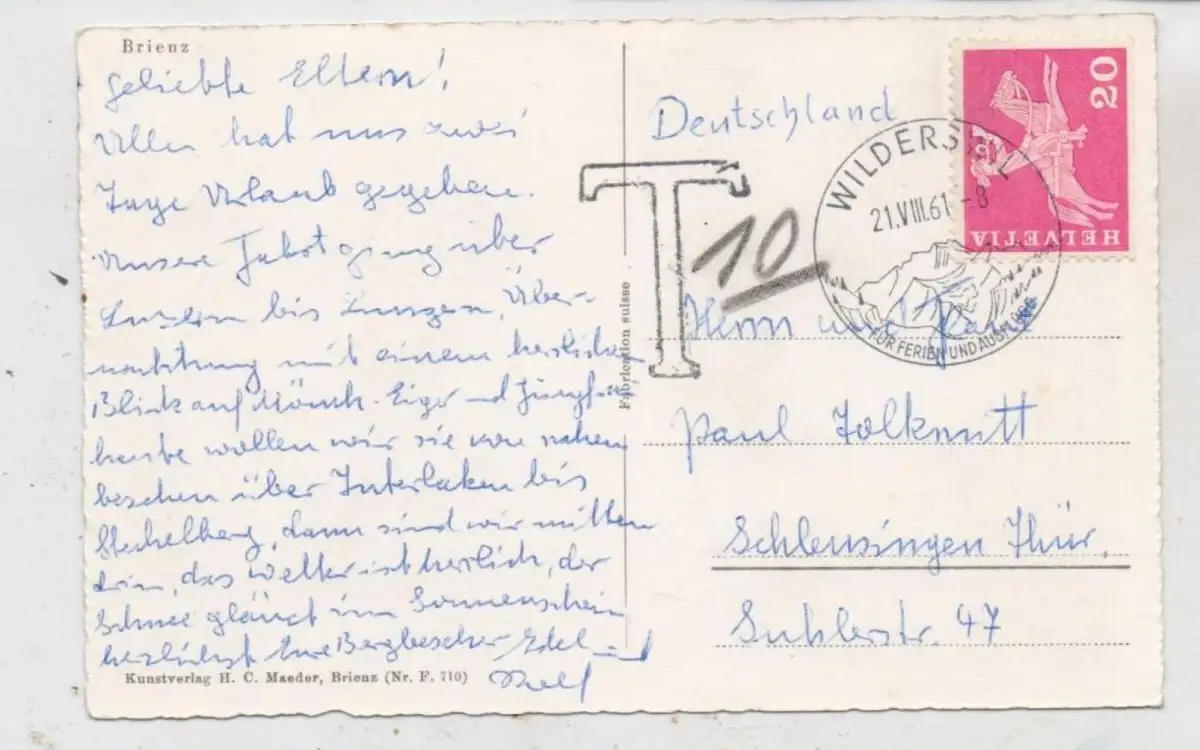 Brienz
geliebte Eltern!
hat uns zwei
Tage Urlaub gegeben.
Unsere Fahrt ging über
Luzern bis Lungern, Über-
nachtung mit einem herrlichen
Blick auf Mönch. Eiger und
heute wollen wir sie von nahem
besehen über Interlaken bis
Stechelberg, dann sind wir mitten
drin, das Wetter ist herrlich, der
Schnee glänzt im Sonnenschein
herzlichst Eure Bergbeseher Edel und
Rolf
Kunstverlag H. C. Maeder, Brienz (Nr. F. 710)
Fabrication suisse
T
10
Deutschland
WILDERSWIL
21.VIII.61 -8
FÜR FERIEN UND AUSFLÜGE
20
HELVETIA
Herrn und Frau
Paul
Schleusingen Thür.
Suhlerstr. 47